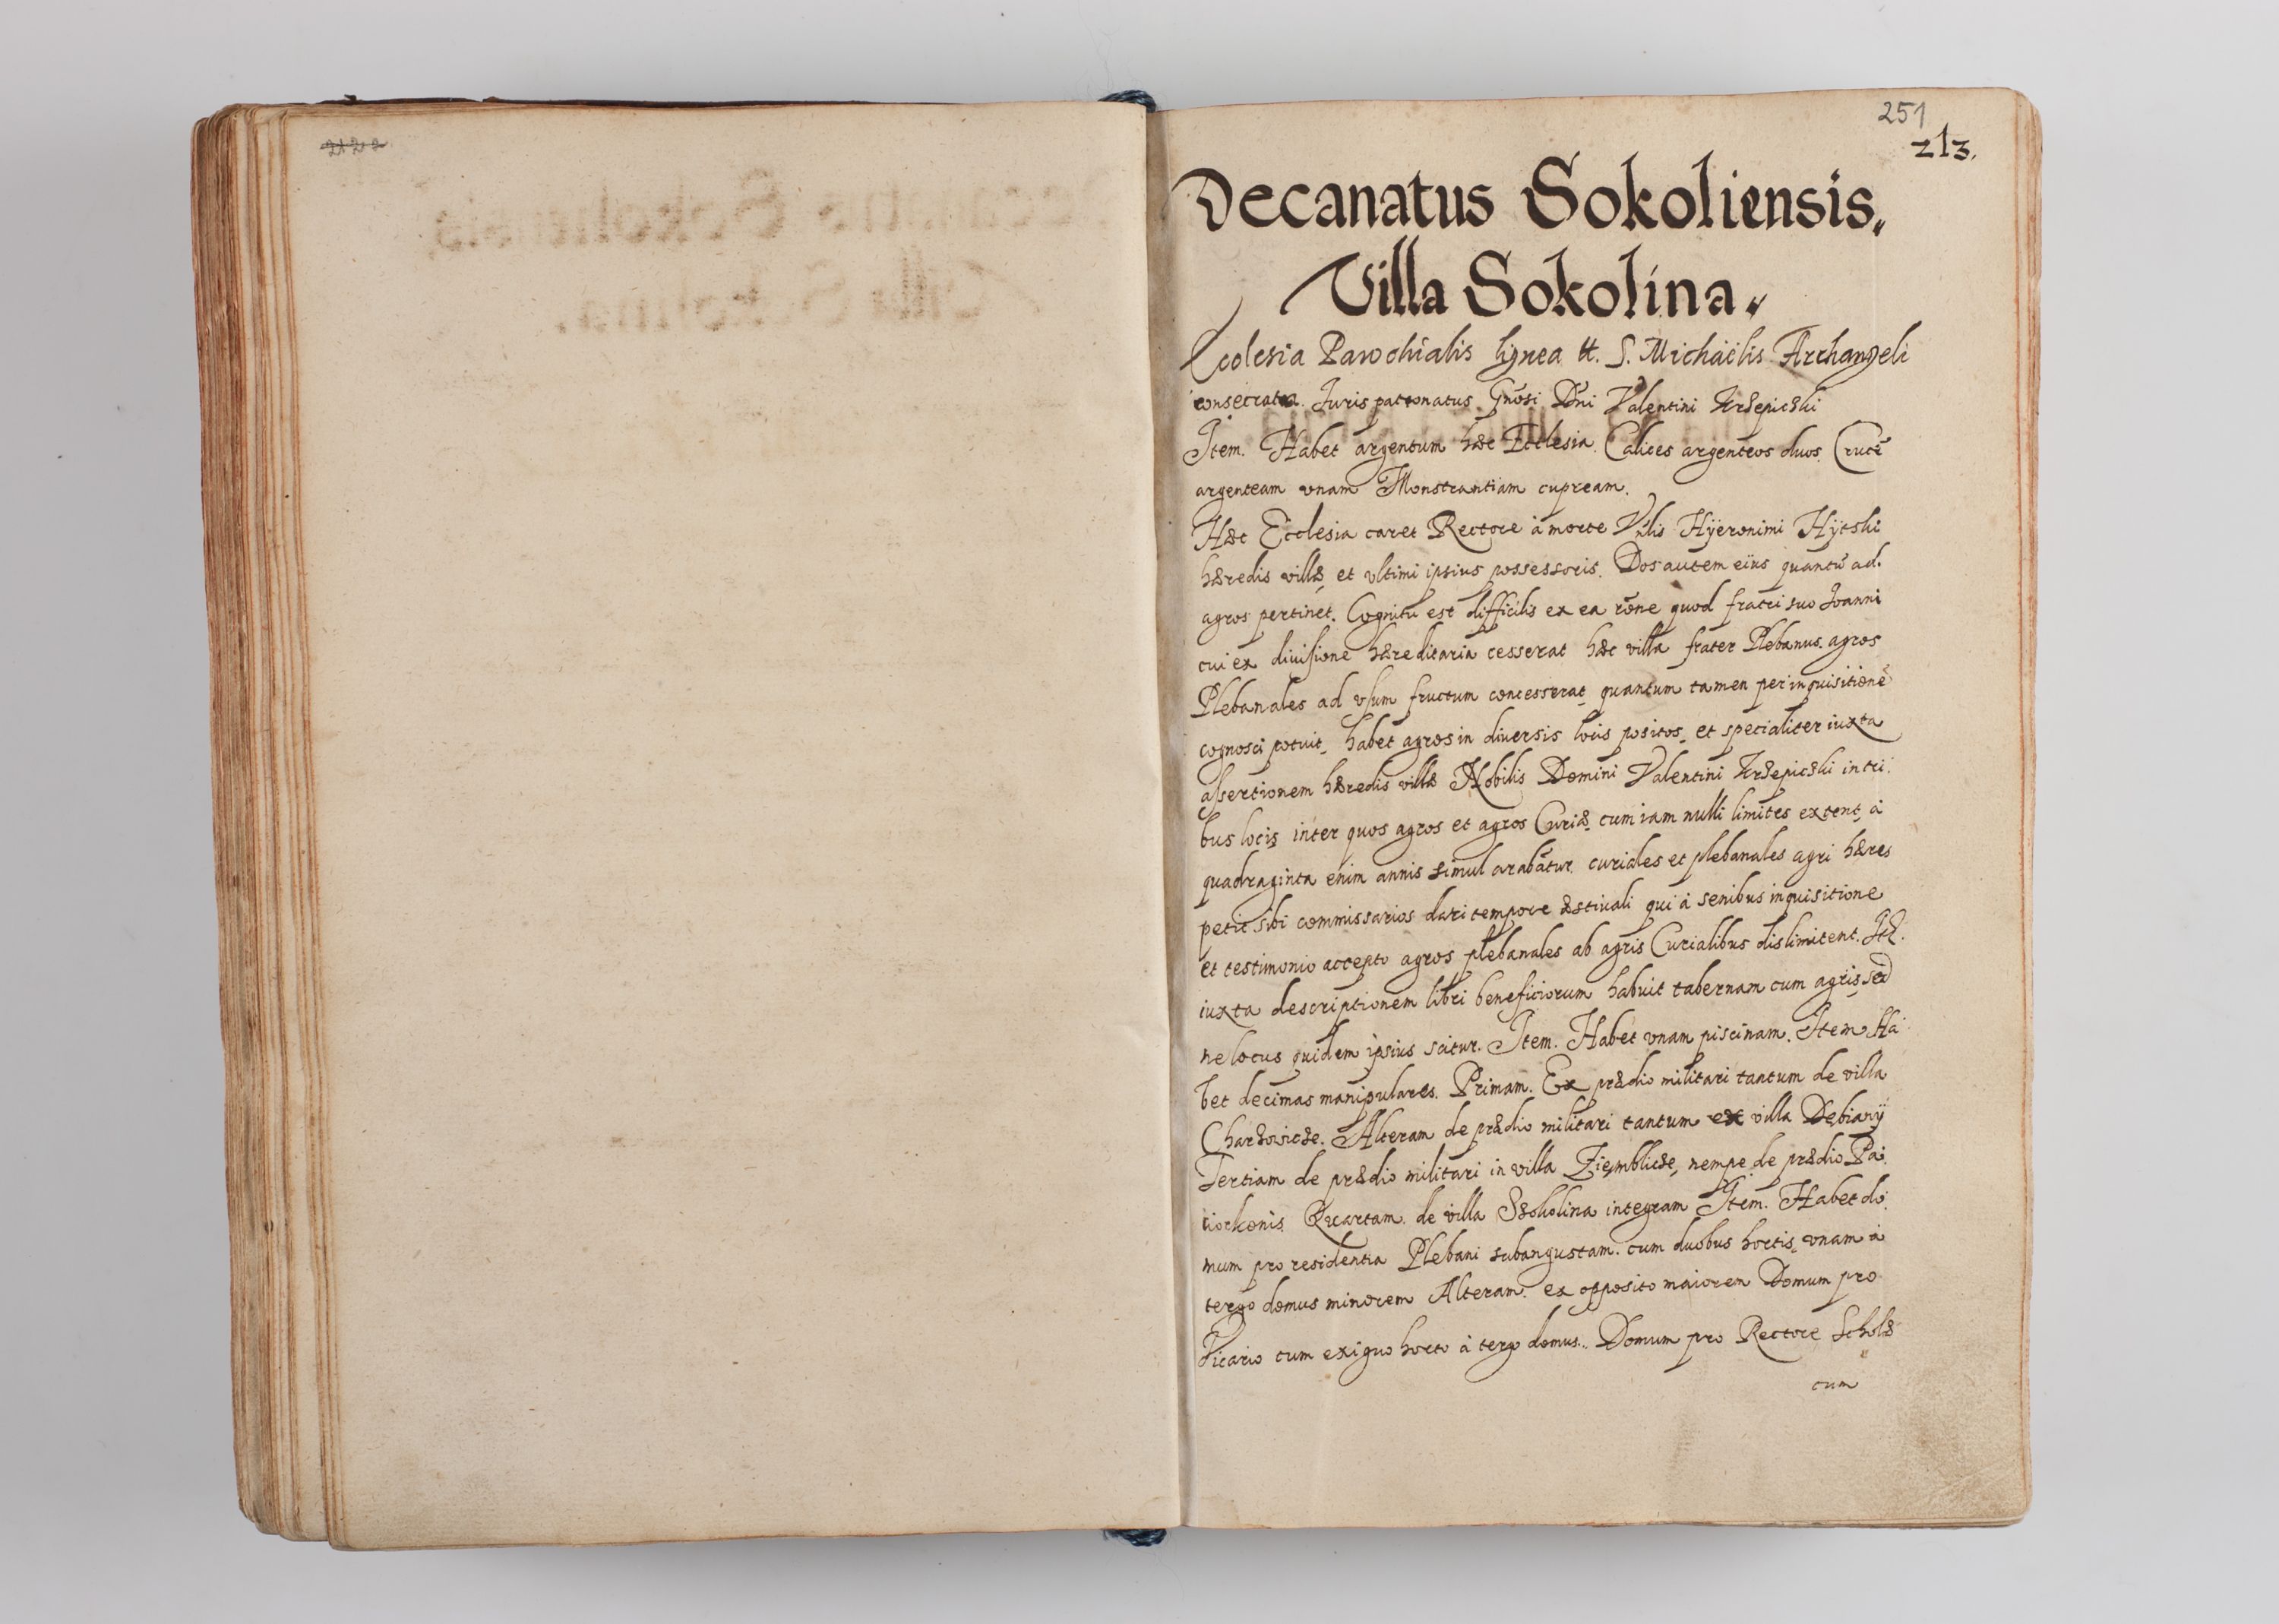 251
213.
Decanatus Sokoliensis
Villa Sokolina
Ecclesia Parochialis lignea tt. S. Michaëlis Archangeli
consecrata. Juris patronatus Gnosi Dni Valentini Krzepiczki
Item. Habet argentum hæc Ecclesia. Calices argenteos duos. Crucē
argenteam vnam Monstrantiam cupream.
Hæc Ecclesia caret Rectore à morte Hÿeronimi
hæredis villæ, et vltimi ipsius possessoris. Dos autem eius quantū ad
agros pertinet. Cognitu est difficilis ex ea rōne quod fratri suo Joanni
cui ex diuisione hæreditaria cesserat hæc villa frater Plebanus. agros
Plebanales ad vsum fructum concesserat, quantum tamen per inquisitionē
cognosci potuit, habet agros in diuersis locis positos, et specialiter iuxta
assertionem hæredis villæ Nobilis Domini Valentini Krzepiczki in tri:
bus locis inter quos agros et agros Curiæ, cum iam nulli limites extent, à
quadraginta enim annis simul arabātur curiales et plebanales agri hæres
petit sibi commissarios dari tempore æstiuali qui à senibus inquisitione
et testimonio accepto agros plebanales ab agris Curialibus dislimitent.
iuxta descriptionem libri beneficiorum habuit tabernam cum agris, sed
ne locus quidem ipsius scitur. Item. Habet vnam piscinam. Item Ha:
bet decimas manipulares. Primam. Ex prædio militari tantum de villa
Charzowicze. Alteram de prædio militari tantum ex villa Debianÿ
Tertiam de prædio militari in villa Ziemblicze, nempe de prædio Pai:
Quartam. de villa Szokolina integram Item. Habet do:
mum pro residentia Plebani subangustam. cum duobus hortis, vnam à
tergo domus minorem Alteram. ex opposito maiorem Domum pro
Vicario cum exiguo horto à tergo domus. Domum pro Rectore Scholæ
cum